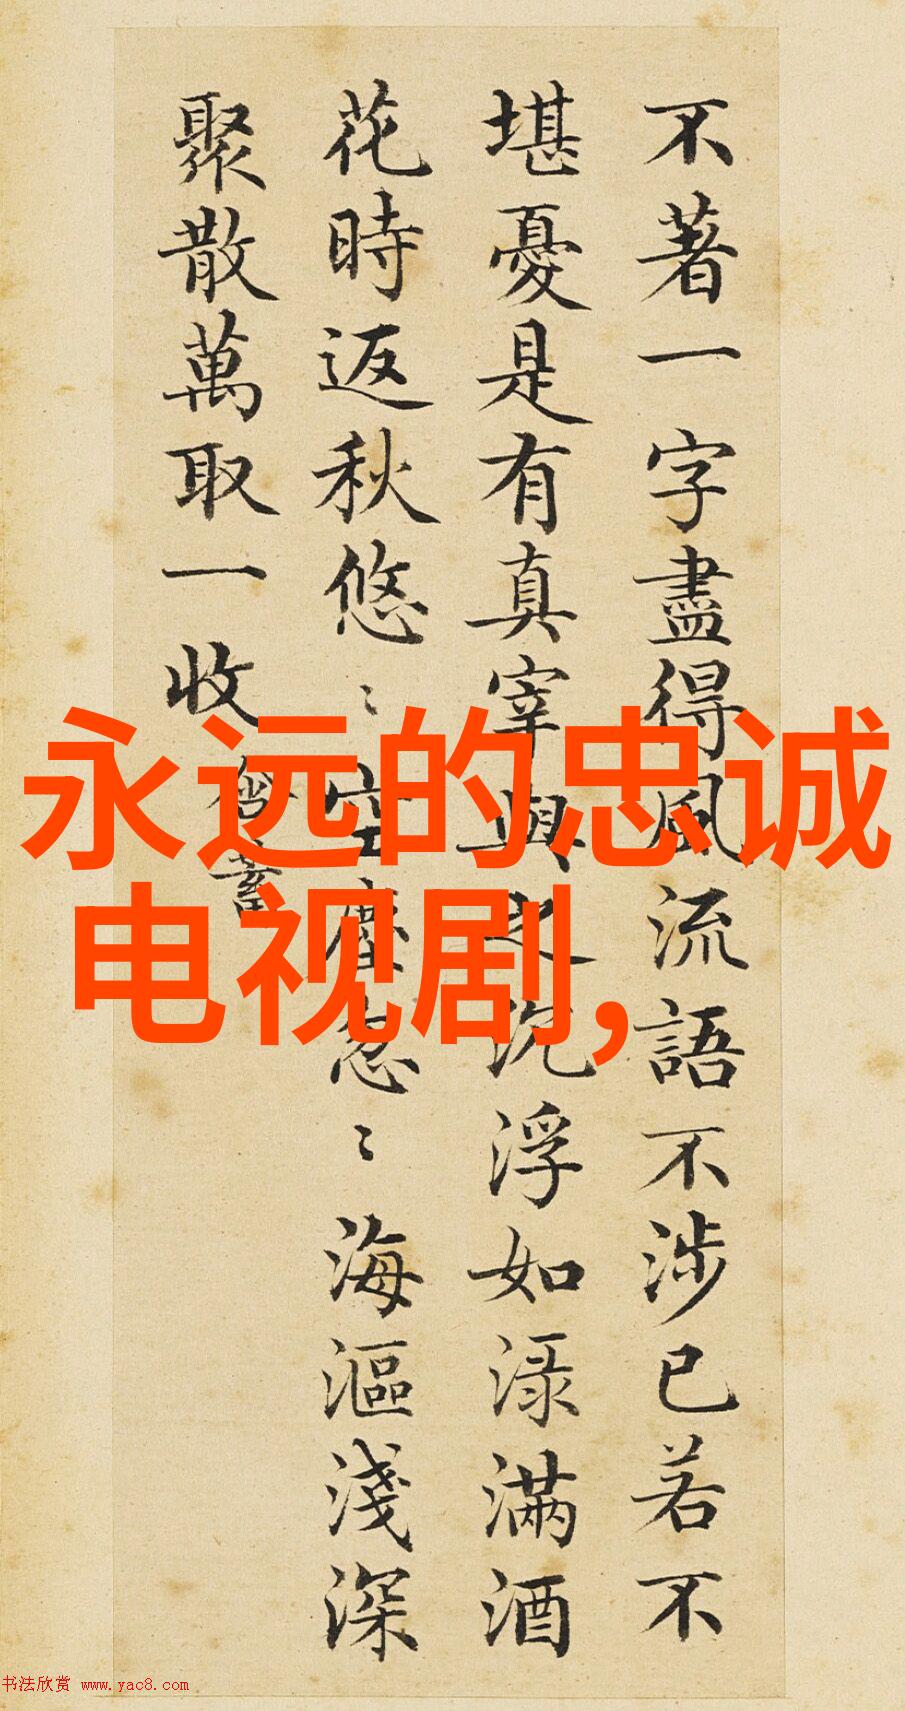 不著一字盡得風流語不涉已若不
堪憂是有真宰與之沉浮如渌滿酒
花時返秋悠〻空塵忽〻海漚淺深
聚散萬取一收
含蓄
永远的忠诚
电视剧,
书法欣赏 www.yac8.com